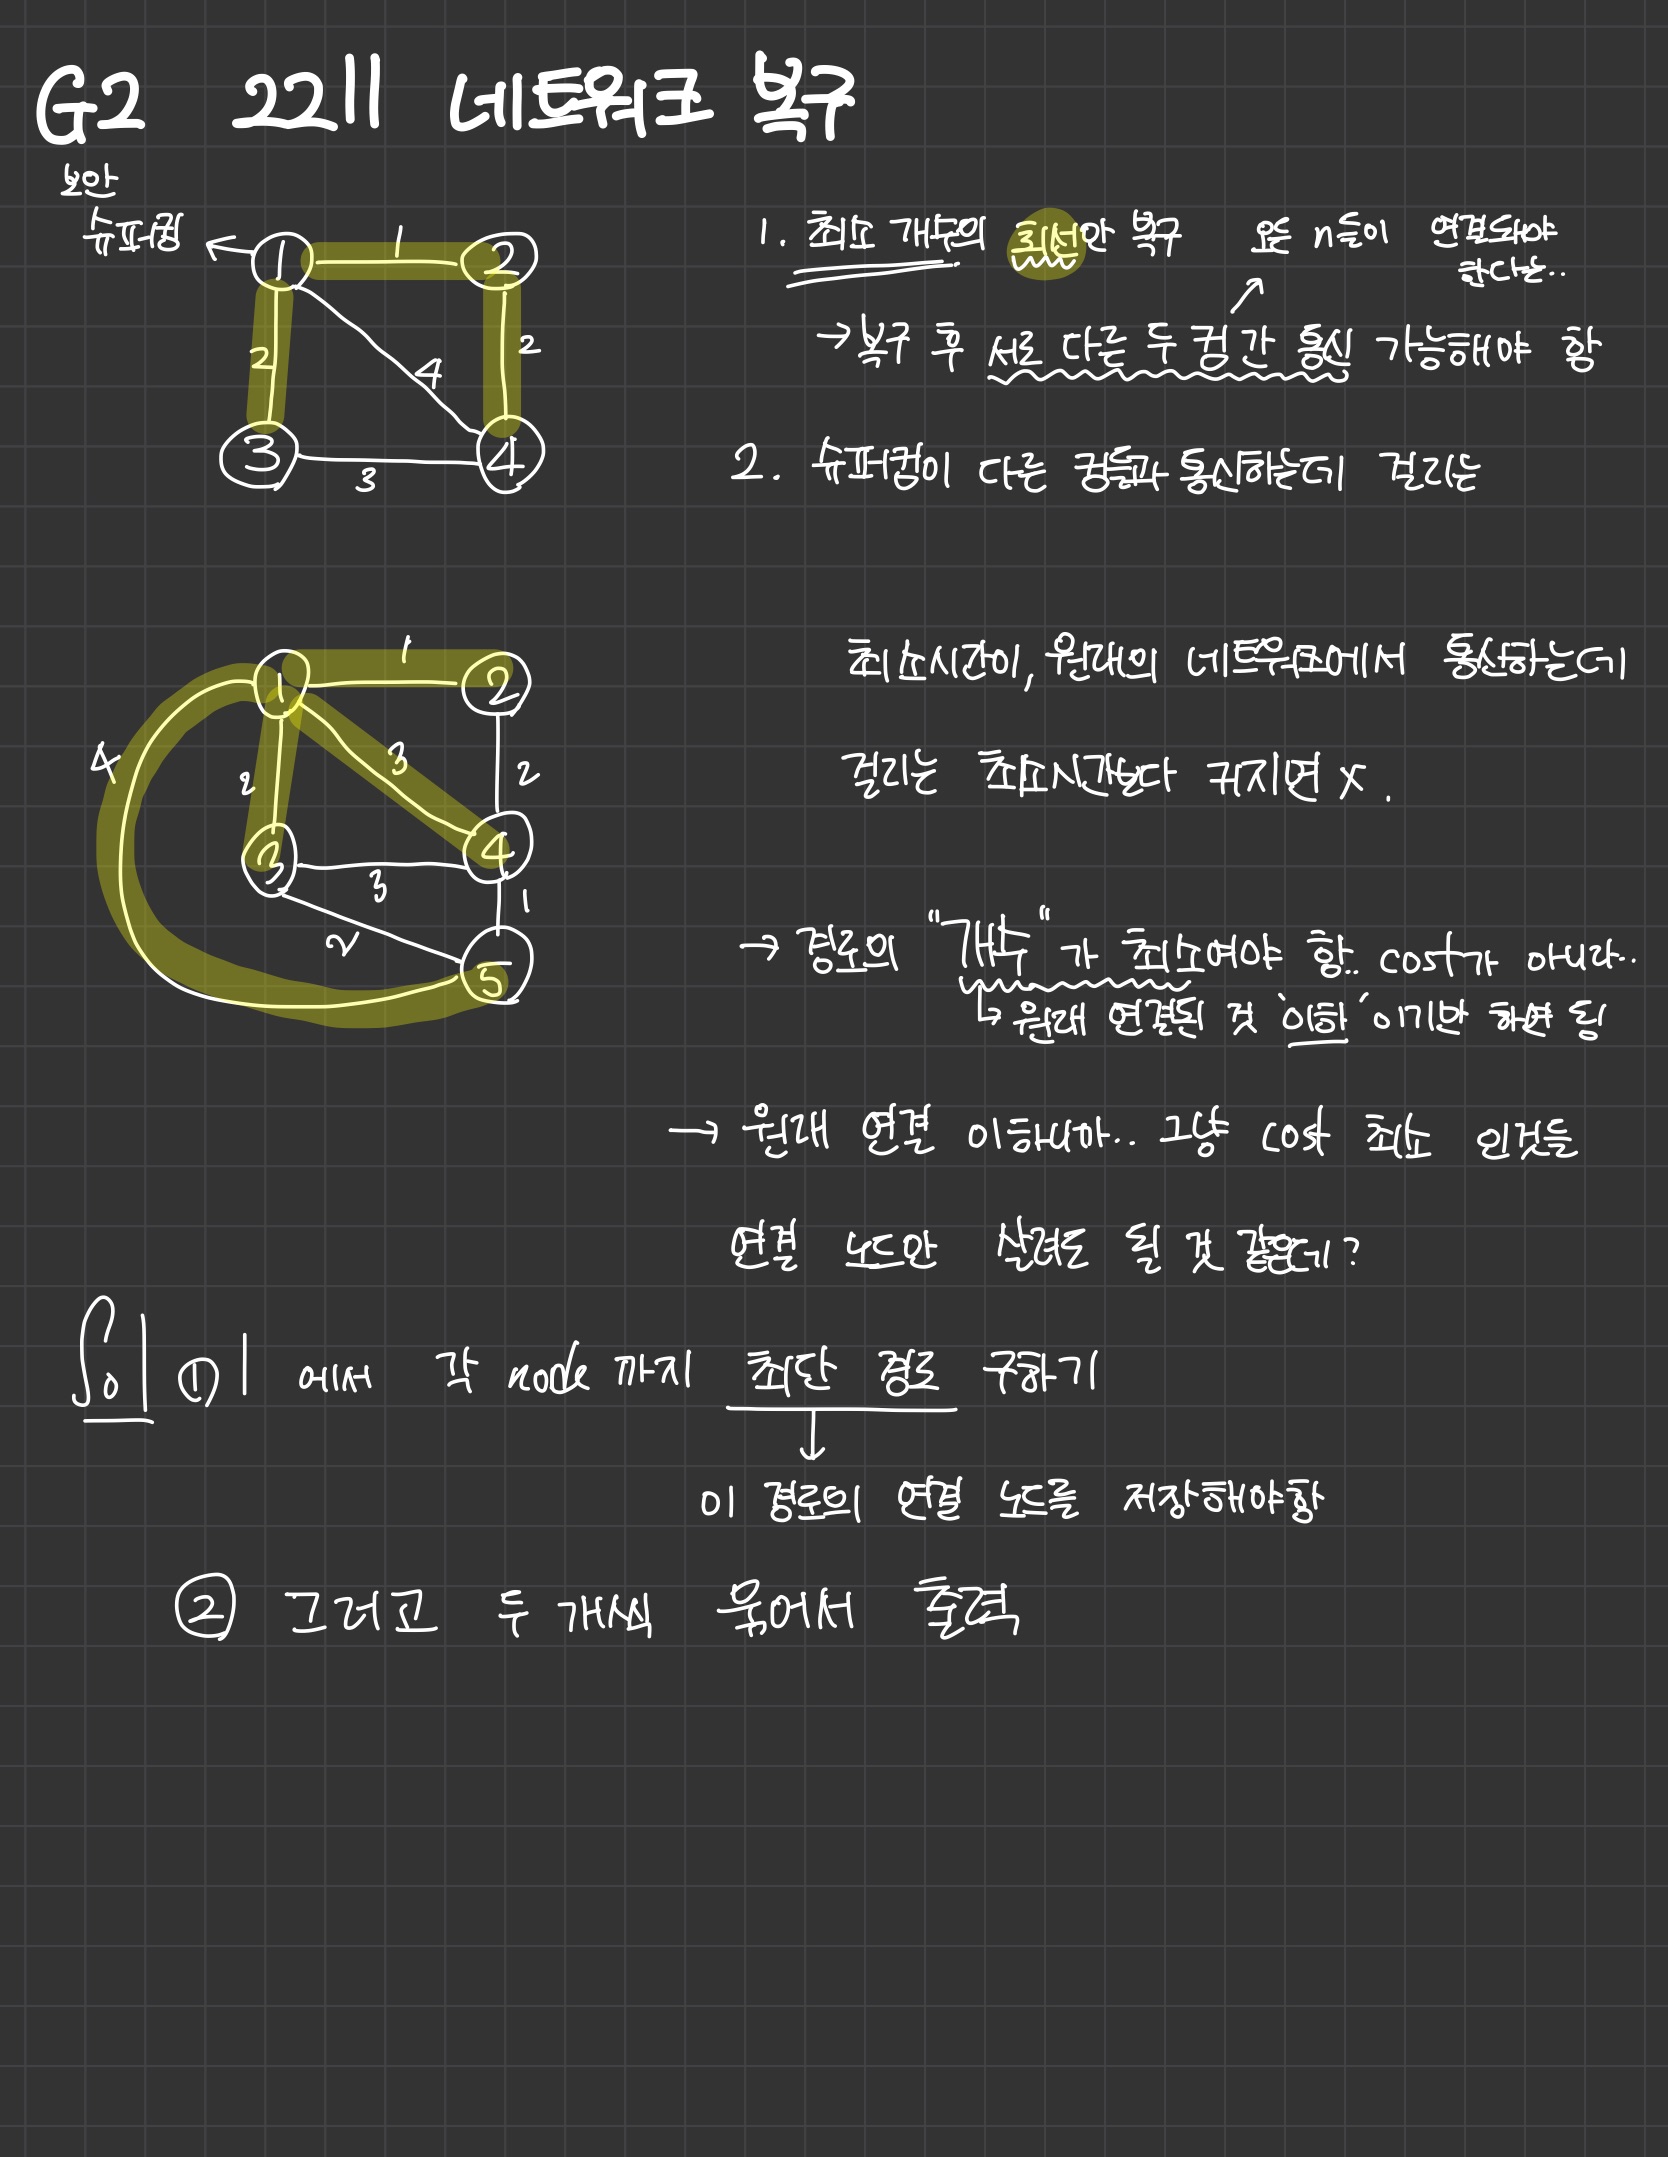 G2 2211 네트워크 복구
보안
슈퍼컴
1
1
2
2
4
2
3
3
4
1. 최소 개수의 회선만 복구 모든 n들이 연결돼야
한다는..
→ 복구 후 서로 다른 두 컴간 통신 가능해야 함
2. 슈퍼컴이 다른 컴들과 통신하는데 걸리는
최소시간이, 원래의 네트워크에서 통신하는데
걸리는 최소시간보다 커지면 X.
1
1
2
4
2
3
2
3
3
4
2
1
5
→ 경로의 "개수"가 최소여야 함.. cost가 아니라..
↳ 원래 연결된 것 '이하'이기만 하면 됨
→ 원래 연결 이하니까.. 그냥 cost 최소 인것들
연결 노드만 살려도 될 것 같은데?
① 1 에서 각 node 까지 최단 경로 구하기
↓
이 경로의 연결 노드를 저장해야함
② 그러고 두 개씩 묶어서 출력